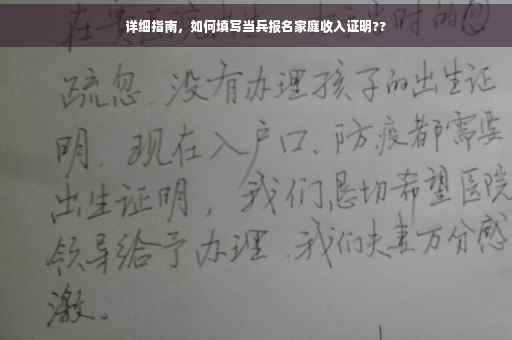 详细指南，如何填写当兵报名家庭收入证明??
疏忽.没有办理孩子的出生证
明.现在入户口、防疫都需要
出生证明，我们恳切希望医院
领导给予办理.我们夫妻万分感
激。